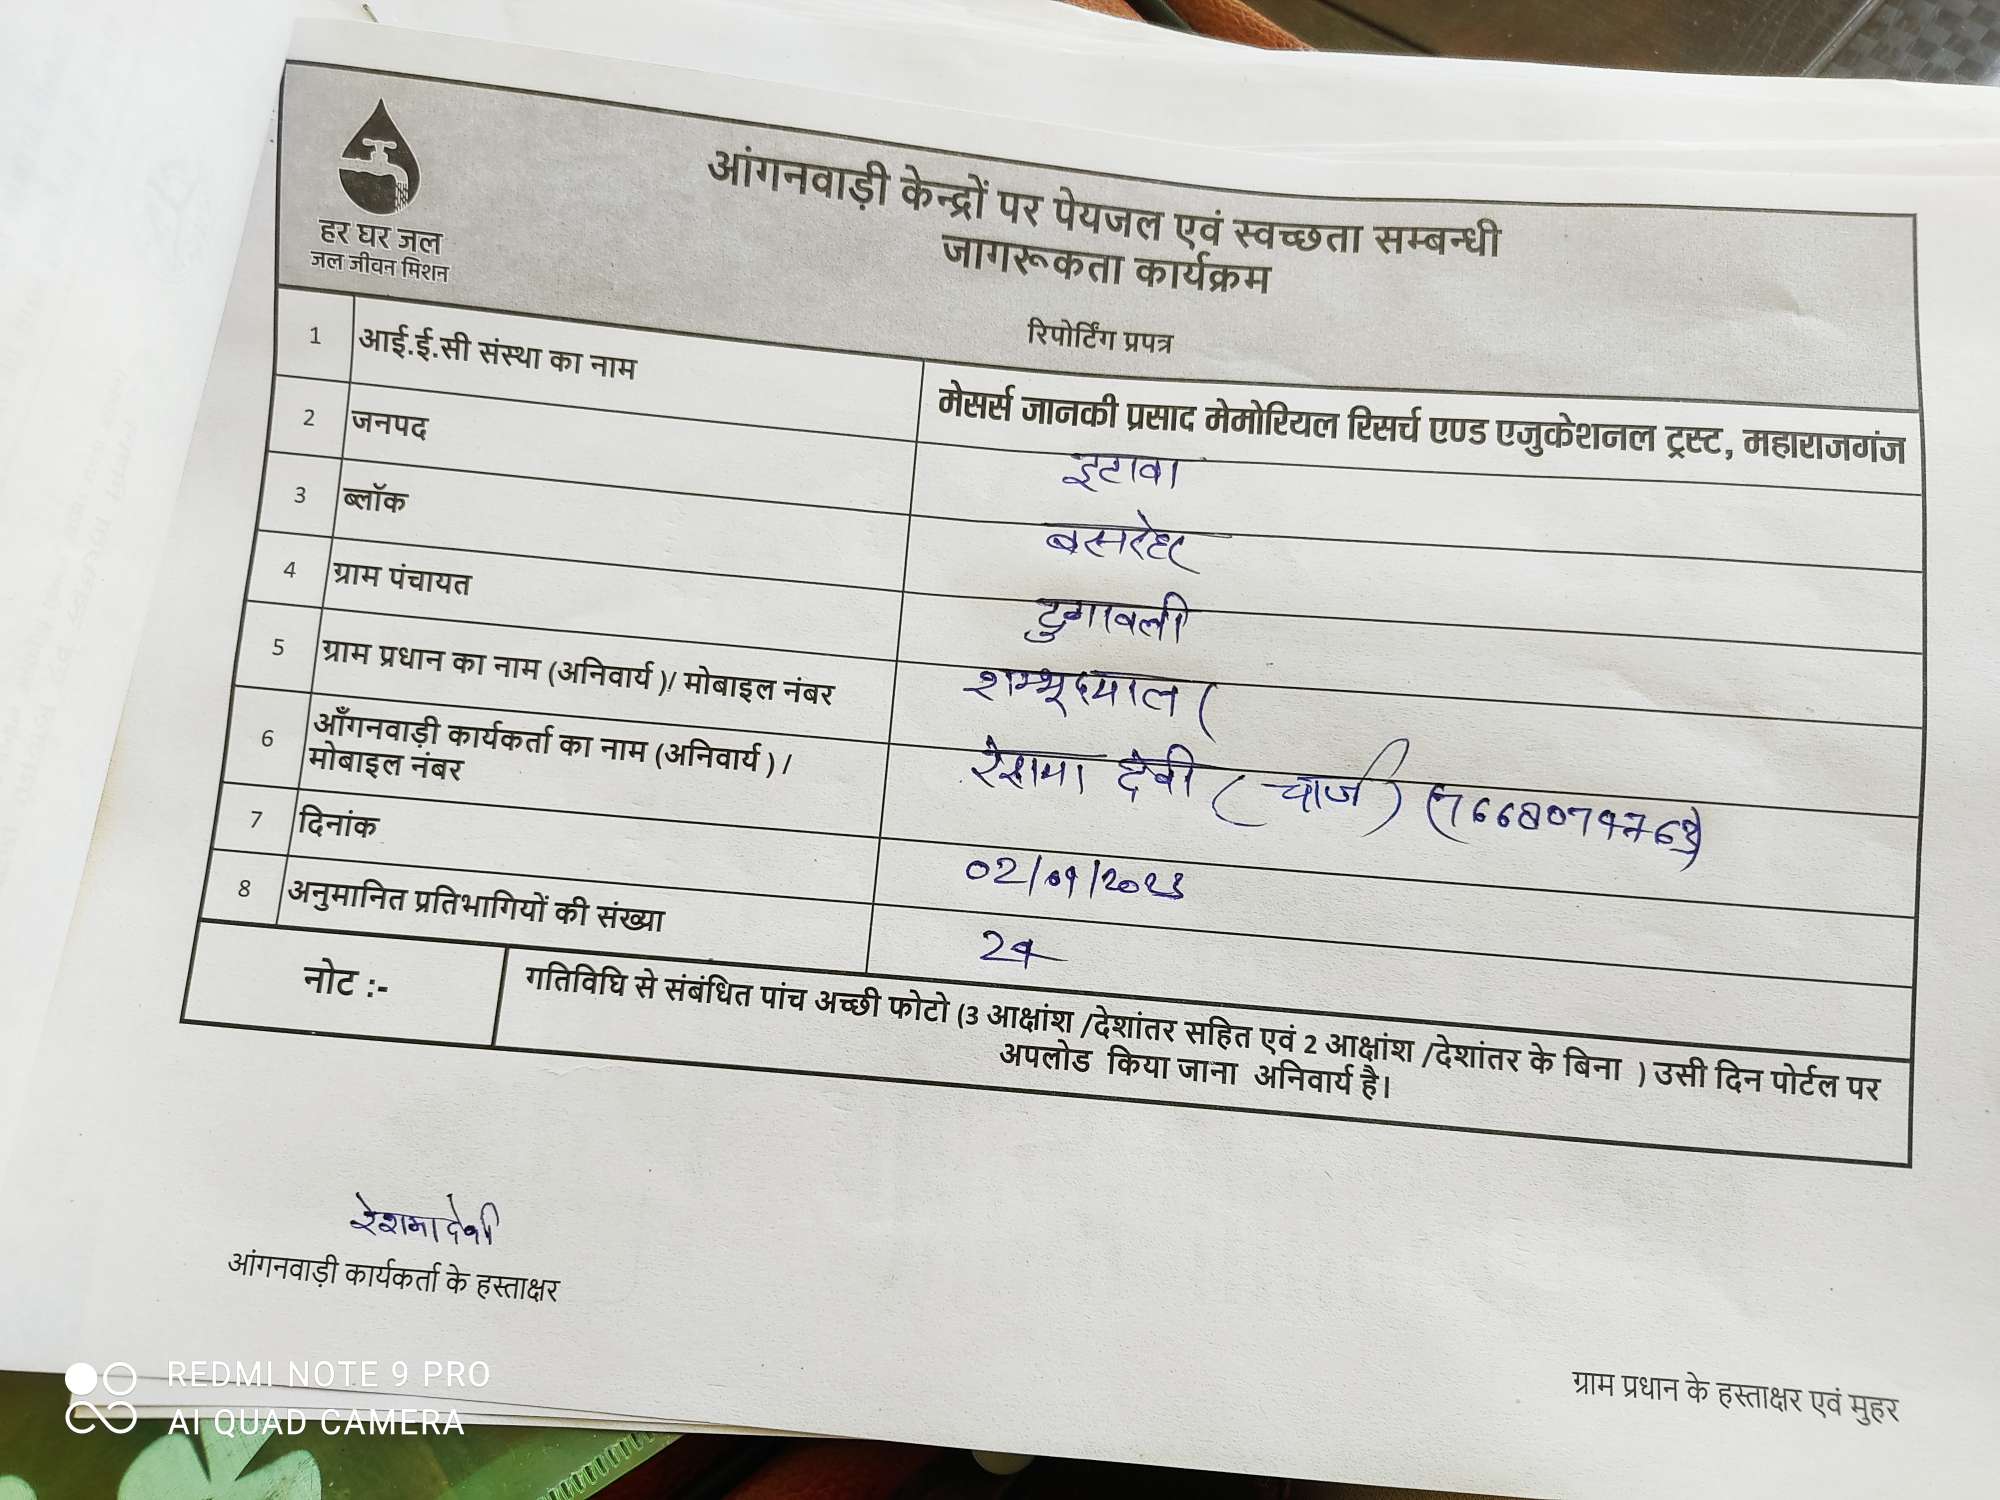 हर घर जल
जल जीवन मिशन
आंगनवाड़ी केन्द्रों पर पेयजल एवं स्वच्छता सम्बन्धी
जागरूकता कार्यक्रम
रिपोर्टिंग प्रपत्र
1 आई.ई.सी संस्था का नाम मेसर्स जानकी प्रसाद मेमोरियल रिसर्च एण्ड एजुकेशनल ट्रस्ट, महाराजगंज
2 जनपद इटावा
3 ब्लॉक बसरेहर
4 ग्राम पंचायत दुगावली
5 ग्राम प्रधान का नाम (अनिवार्य )/ मोबाइल नंबर शम्भूदयाल (
6 आँगनवाड़ी कार्यकर्ता का नाम (अनिवार्य ) /
मोबाइल नंबर रेशमा देवी (चार्ज)
7 दिनांक 02/09/2023
8 अनुमानित प्रतिभागियों की संख्या 24
नोट :- गतिविधि से संबंधित पांच अच्छी फोटो (3 आक्षांश /देशांतर सहित एवं 2 आक्षांश /देशांतर के बिना ) उसी दिन पोर्टल पर
अपलोड किया जाना अनिवार्य है।
रेशमा देवी
आंगनवाड़ी कार्यकर्ता के हस्ताक्षर
ग्राम प्रधान के हस्ताक्षर एवं मुहर
REDMI NOTE 9 PRO
AI QUAD CAMERA